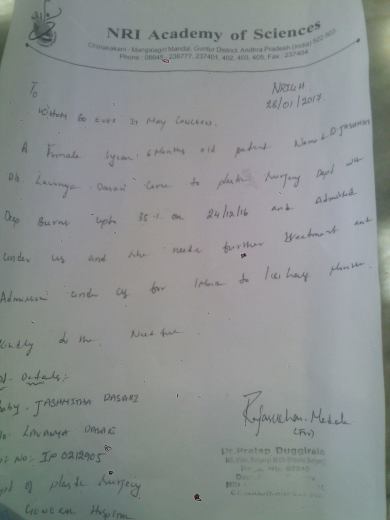 NRI Academy of Sciences
Chinakakani - Mangalagiri Mandal, Guntur District, Andhra Pradesh (India) 522 503
Phone : 08645 - 236777, 237401, 402, 403, 405, Fax : 237404
NRIGH
28/01/2017.
To
Whom So Ever It May Concern.
A Female 4 years 6 months old patient Name D. JASHMITHA
D/o. Lavanya Dasari Came to plastic Surgery Dept with
Deep Burns upto 35 % on 24/12/16 and Admitted
under us and she needs further treatment and
Admission under us for 1 more to
Kindly do the Needful
pt. Details:-
Baby. JASHMITHA DASARI
D/o. LAVANYA DASARI
NO: IP 0212905
Dept of plastic Surgery
General Hospital
(For)
Dr. Pratap Duggirala